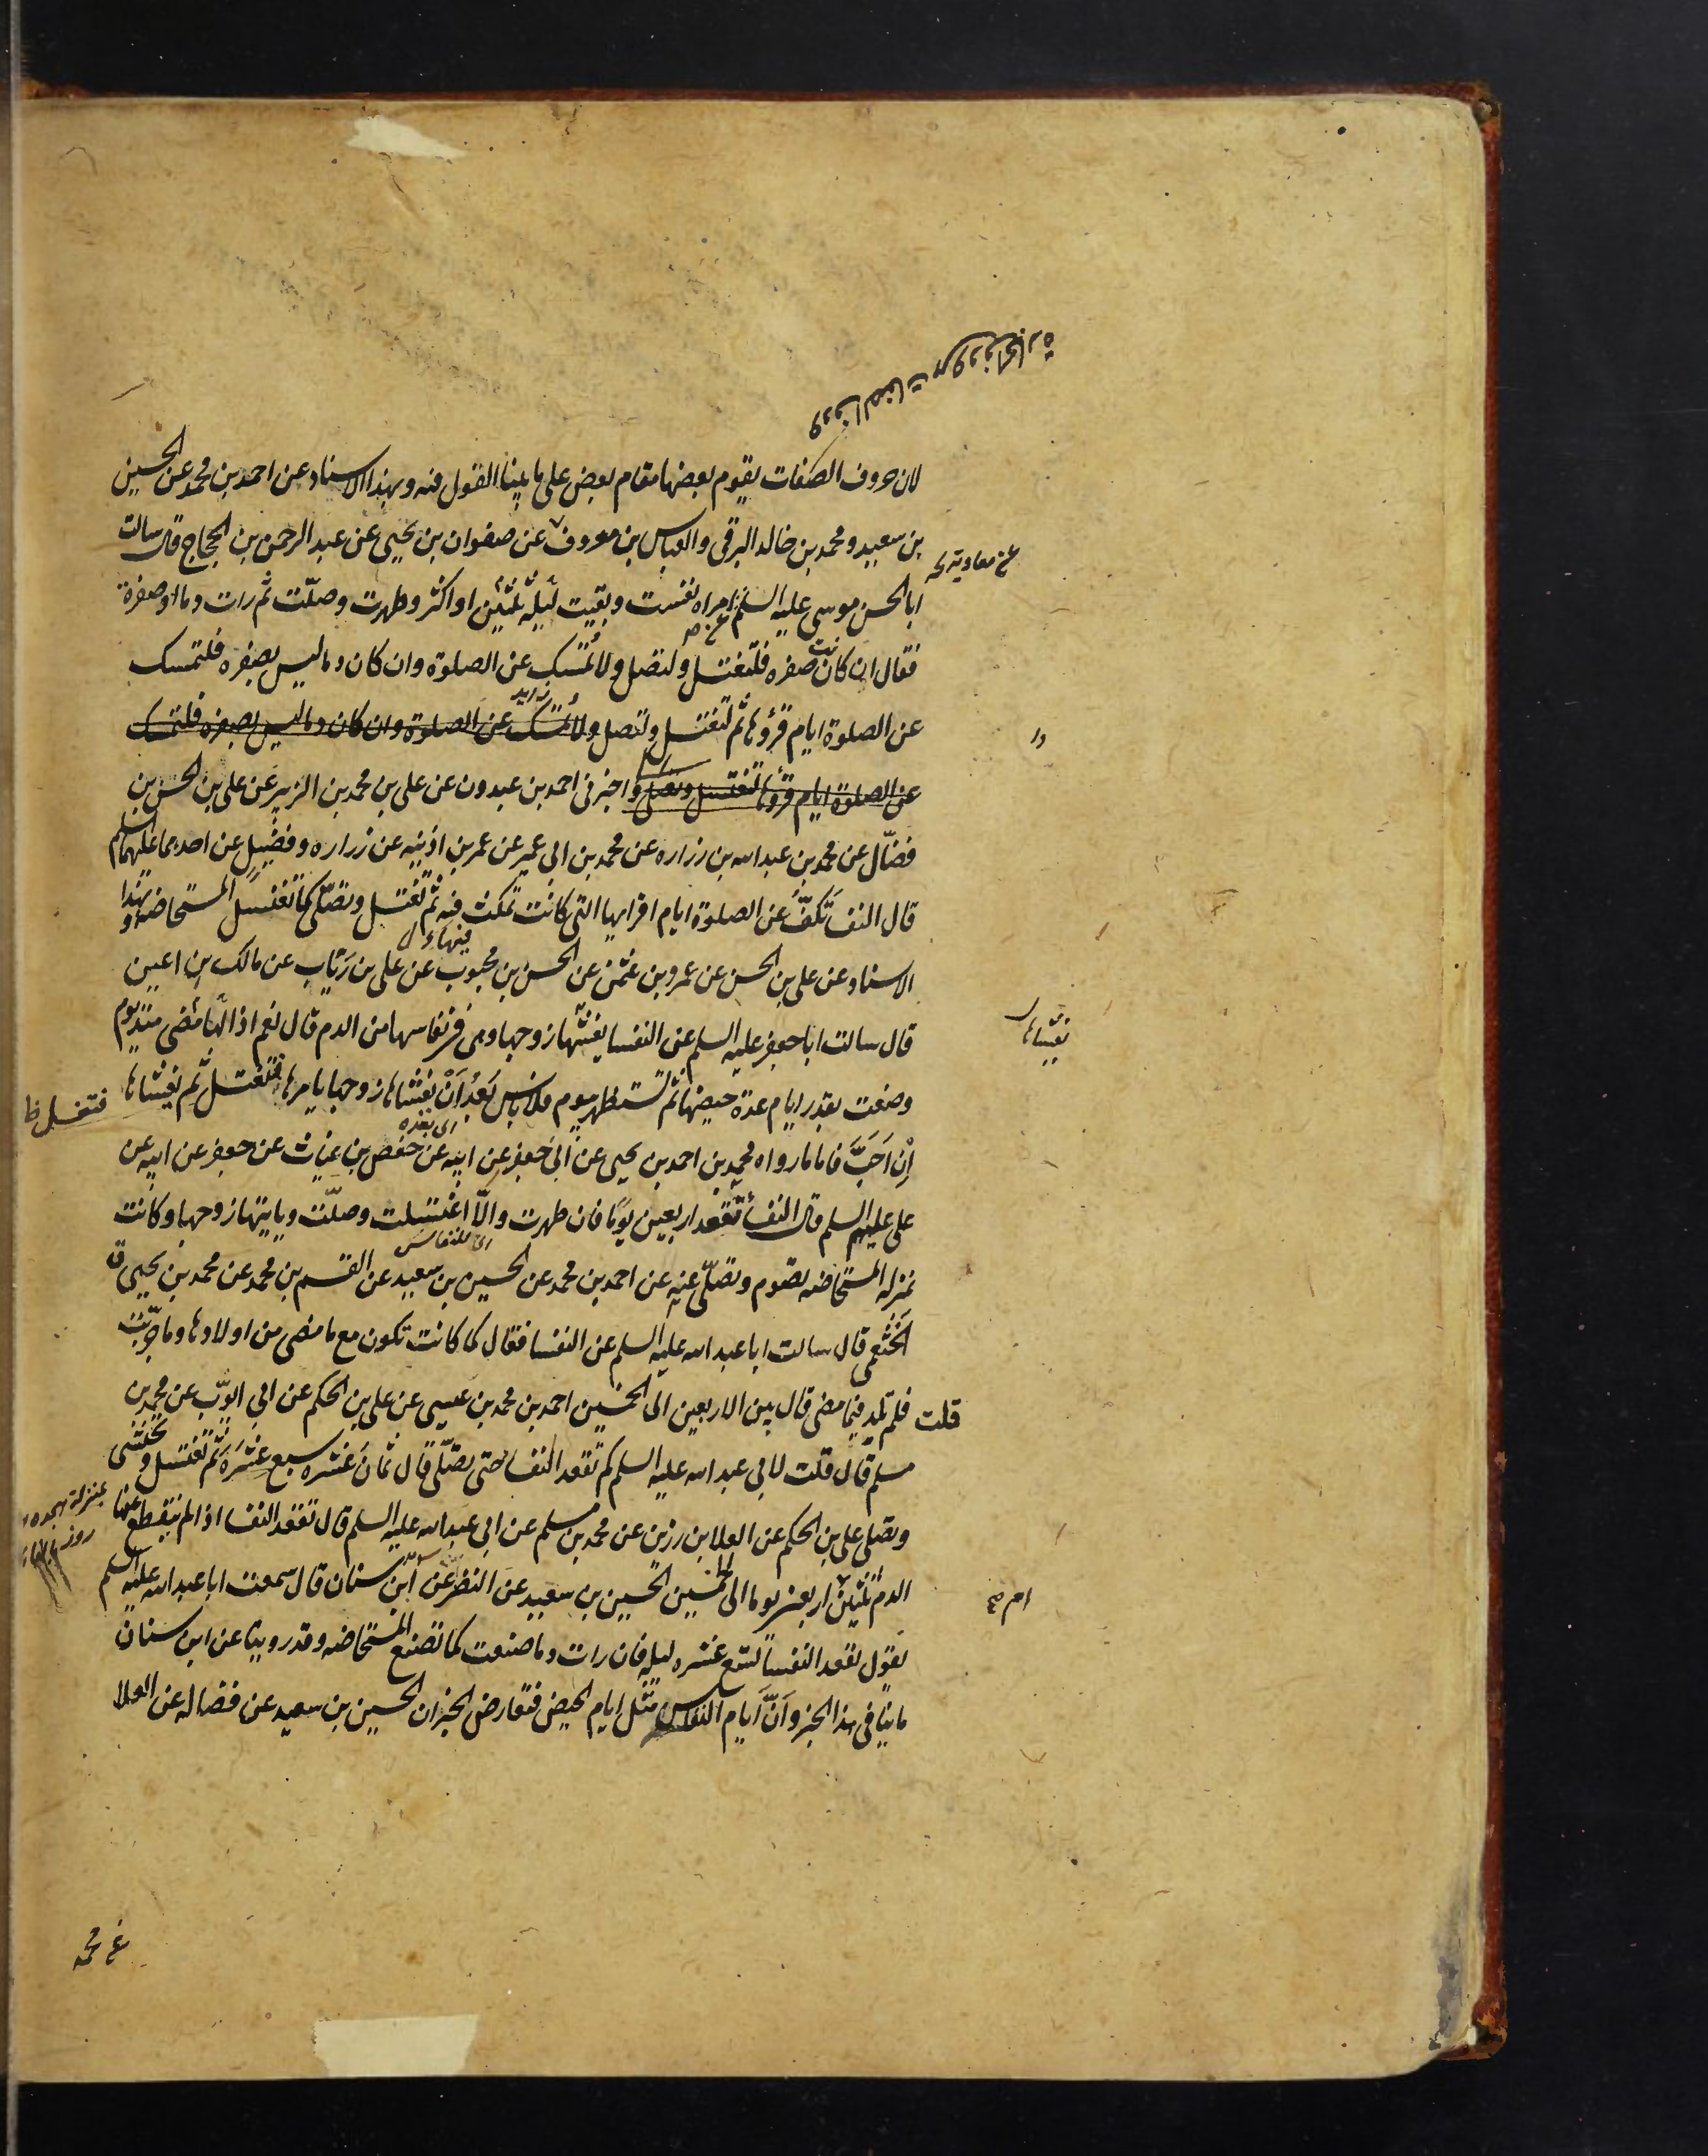 لان حروف الصفات يقوم بعضها مقام بعض على ما بينا القول فيه وبهذا الاسناد عن احمد بن محمد عن الحسين
بن سعيد ومحمد بن خالد البرقى والعباس بن معروف عن صفوان بن يحيى عن عبد الرحمن بن الحجاج قال سالت
عن معاوية
ابا الحسن موسى عليه السلم عن امراه نفست وبقيت ليله ثلثين او اكثر وطهرت وصلّت ثم رات دما او صفرة
فقال ان كانت صفره فلتغتسل ولتصل ولا تمسك عن الصلوة وان كان دما ليس بصفره فلتمسك
عن الصلوة ايام قرؤها ثم لتغتسل ولتصل ولا تمسك عن الصلوة وان كان دما ليس بصفره فلتمسك
عن الصلوة ايام قرؤها لتغتسل وتصلى واخبرنى احمد بن عبدون عن على بن محمد بن الزبير عن على بن الحسن بن
فضّال عن محمد بن عبد الله بن زراره عن محمد بن ابى عمير عن عمر بن اذينه عن زراره وفضيل عن احدهما عليهما السلم
قال النفسا تكفّ عن الصلوة ايام اقرايها التى كانت تمكث فيه ثم تغتسل وتصلّى كما تغتسل المستحاضه وبهذا
الاسناد عن على بن الحسن عن عمرو بن عثمن عن الحسن بن محبوب عن على بن رئاب عن مالك بن اعين
قال سالت ابا جعفر عليه السلم عن النفسا يغشها زوجها وهى فى نفاسها من الدم قال نعم اذا لها مضى منذ يوم
يغشاها
وضعت بقدر ايام عدة حيضها ثم تستظهر بيوم فلا باس بعد ان يغشاها زوجها يامرها فتغتسل ثم يغشاها
فتغتسل ظا
اِن اَحَبَّ فاما ما رواه محمد بن احمد بن يحيى عن ابى جعفر عن ابيه عن حفص بن غياث عن جعفر عن ابيه عن
على عليهم السلم قال النفسا تقعد اربعين يومًا فان طهرت والّا اغتسلت وصلّت وياتيها زوجها وكانت
بمنزله المستحاضه تصوم وتصلّى عنه عن احمد بن محمد عن الحسين بن سعيد عن القسم بن محمد عن محمد بن يحيى
الخثعمى قال سالت ابا عبد الله عليه السلم عن النفسا فقال كما كانت تكون مع ما مضى من اولادها وما جرّبت
قلت فلم تلد فيما مضى قال بين الاربعين الى الخمسين احمد بن محمد بن عيسى عن على بن الحكم عن ابى ايوّب عن محمد بن
مسلم قال قلت لابى عبد الله عليه السلم كم تقعد النفسا حتى تصلّى قال ثمان عشره سبع عشره ثم تغتسل وتحتشى
وتصلى على بن الحكم عن العلا بن رزين عن محمد بن مسلم عن ابى عبد الله عليه السلم قال تقعد النفسا اذا لم ينقطع عنها
الدم ثلثين اربعين يوما الى الخمسين الحسين بن سعيد عن النضر عن ابن سنان قال سمعت ابا عبد الله عليه السلم
يقول تقعد النفسا تسع عشره ليله فان رات دما صنعت كما تصنع المستحاضه وقد روينا عن ابن سنان
ما ينافى هذا الخبر وانّ ايام النفاس مثل ايام الحيض فتعارض الخبران الحسين بن سعيد عن فضاله عن العلا
عن محمد